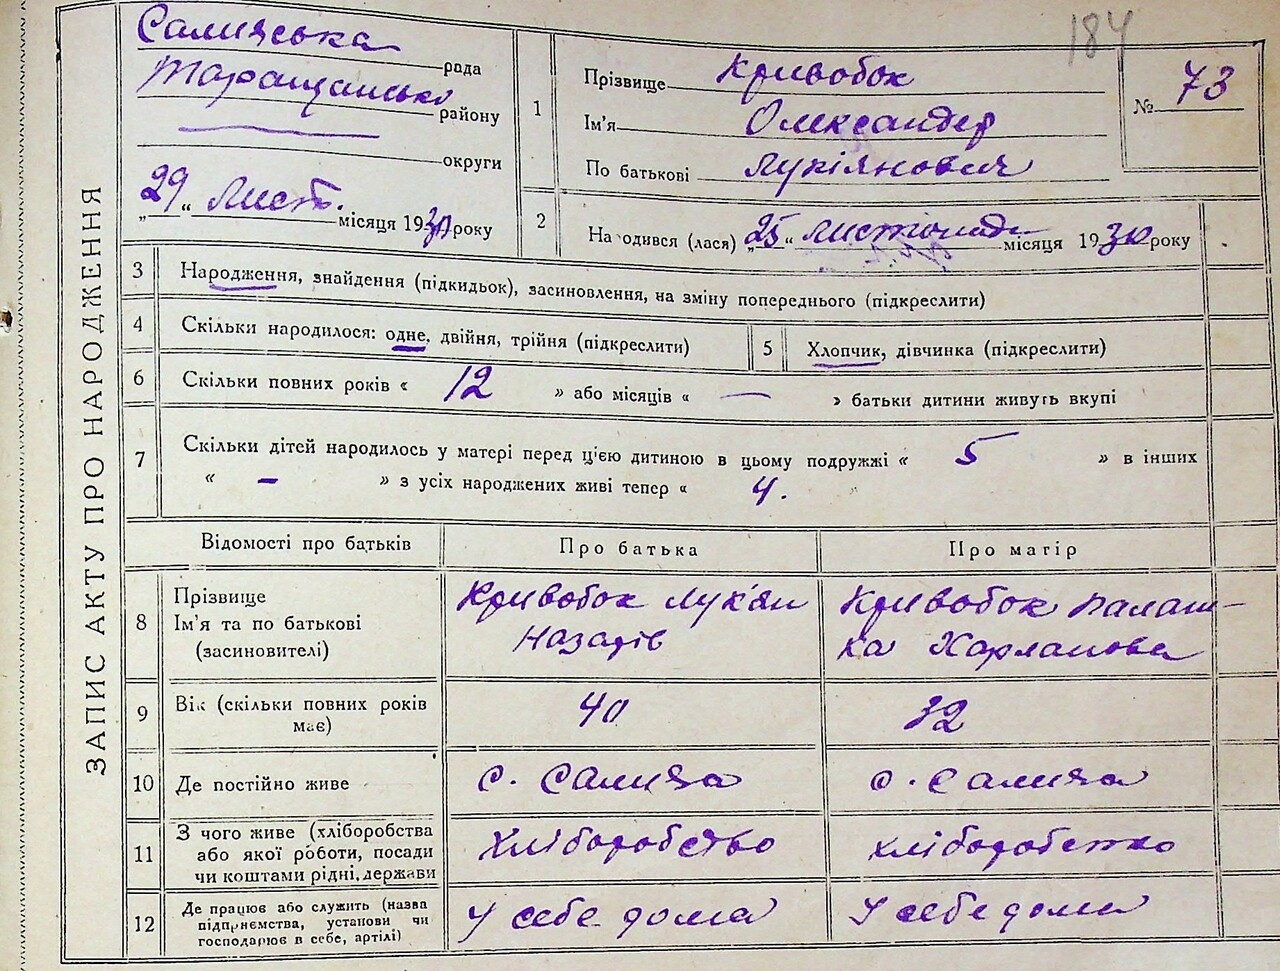 184
ЗАПИС АКТУ ПРО НАРОДЖЕННЯ
Салиська рада
Таращансько району
округи
„29“ Лист. місяця 1930 року
1 Прізвище Кривобок
Ім'я Олександер
По батькові Лукіянович
№ 73
2 Народився (лася) „25“ листопада місяця 1930 року
3 Народження, знайдення (підкидьок), засиновлення, на зміну попереднього (підкреслити)
4 Скільки народилося: одне, двійня, трійня (підкреслити)
5 Хлопчик, дівчинка (підкреслити)
6 Скільки повних років « 12 » або місяців « — » батьки дитини живуть вкупі
7 Скільки дітей народилось у матері перед цією дитиною в цьому подружжі « 5 » в інших
« - » з усіх народжених живі тепер « 4.
Відомості про батьків Про батька Про матір
8 Прізвище
Ім'я та по батькові
(засиновителі)
Кривобок Лук'ян
Назарів
Кривобок Палаш-
ка Харланова
9 Вік (скільки повних років
має)
40
32
10 Де постійно живе с. Салиха с. Салиха
11 З чого живе (хліборобства
або якої роботи, посади
чи коштами рідні, держави
Хліборобство
хліборобство
12 Де працює або служить (назва
підприємства, установи чи
господарює в себе, артілі)
У себе дома
У себе дома